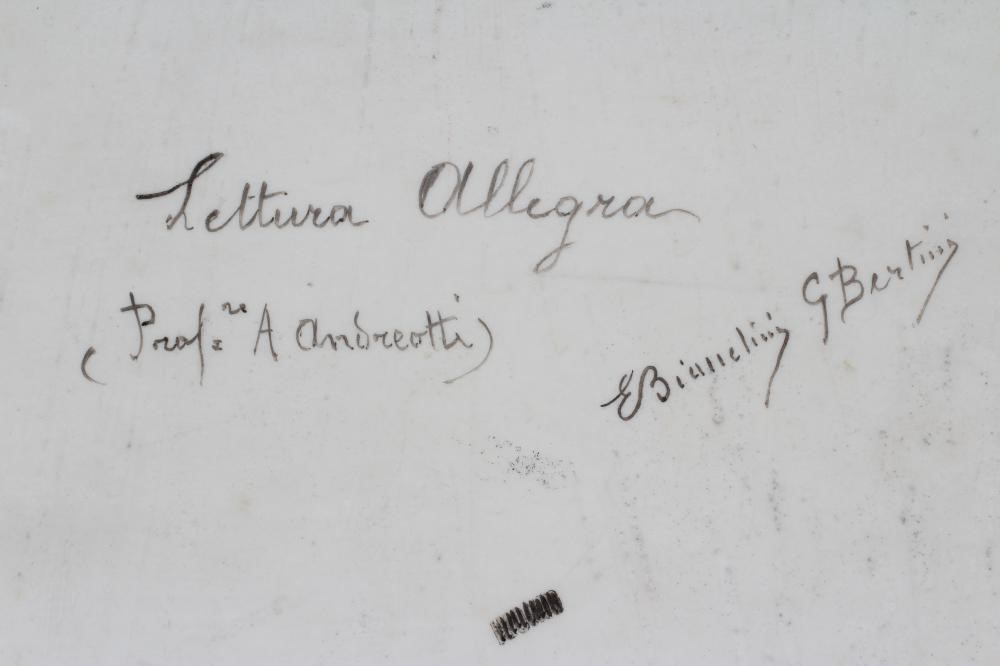 Lettura Allegra
(Prof.re A Andreotti)
E Bianclinj G Bertinj